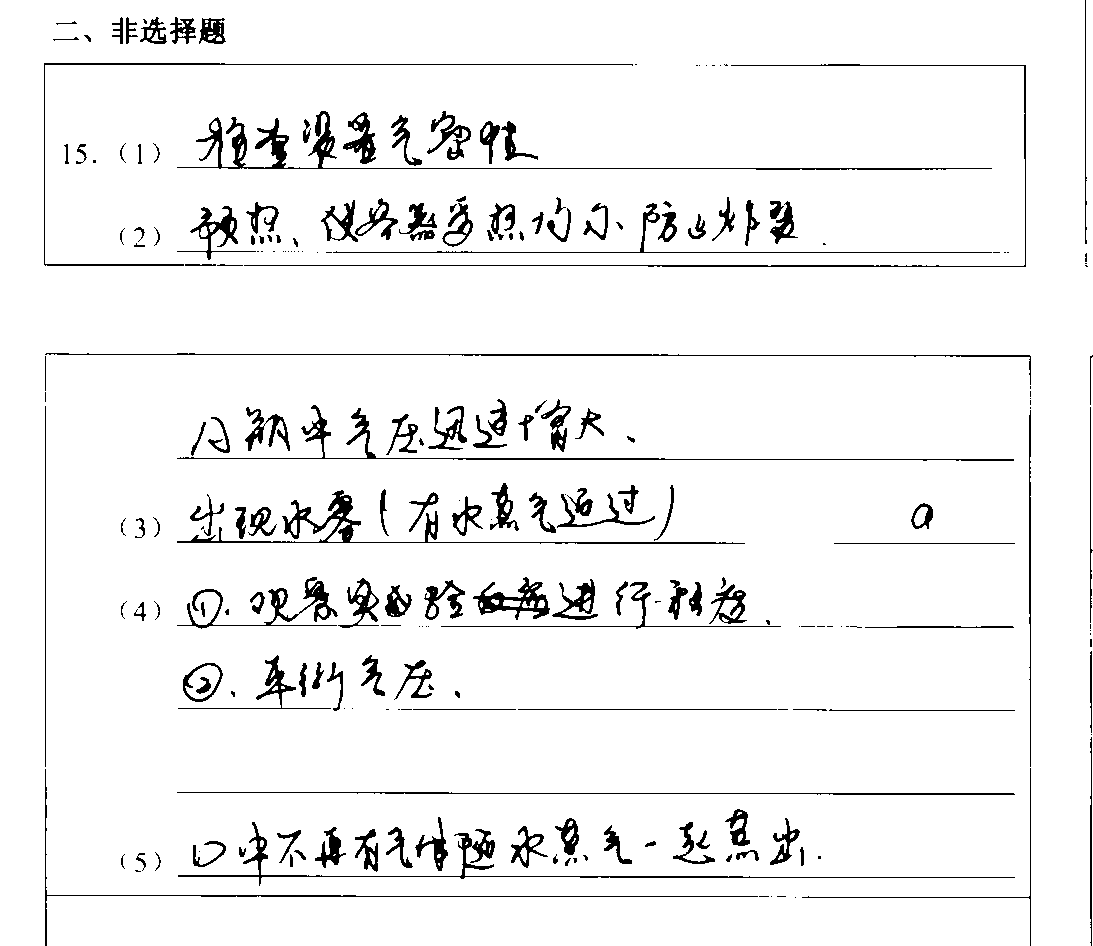 二、非选择题
15.（1）检查装置气密性
（2）预热、使容器受热均匀、防止炸裂.
瓶中气压迅速增大、
（3）出现水雾（有水蒸气通过） a
（4）①.观察实验进行程度、
②.平衡气压、
（5）中不再有气体随水蒸气一起蒸出.